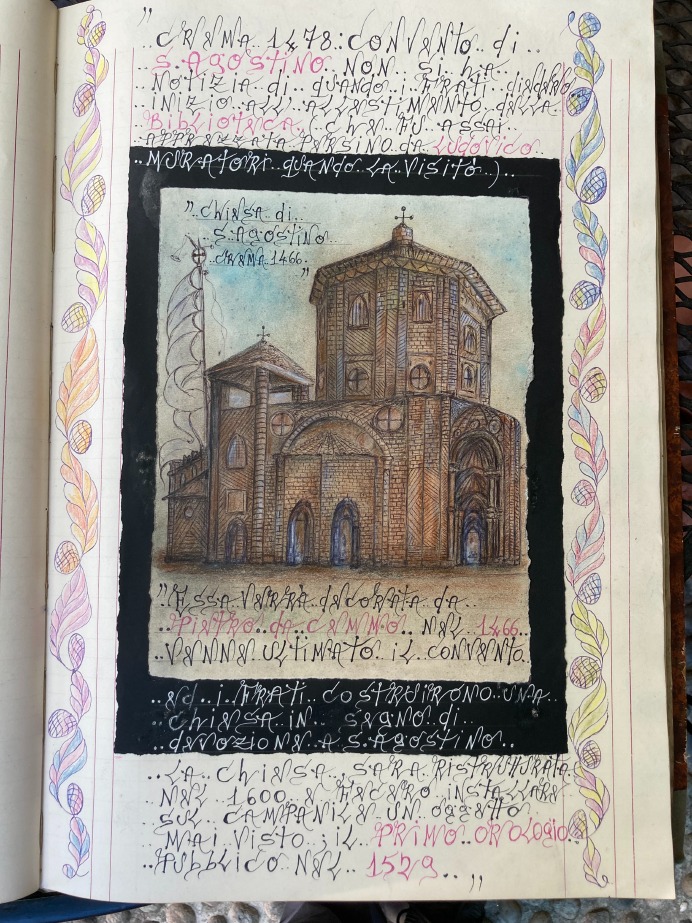 "
.. CREMA 1478: CONVENTO di ..
.. S. AGOSTINO NON SI HA
NOTIZIA di.. quando i FRATI diedero
.. iNiZiO ALL'ALLESTIMENTO dELLA
BibliOTECA. (CHE FU ASSAI
APPREZZATA PERSINO dA LudOViCO..
.. MURATORI quANdO LA VISITÒ )..
".. CHIESA di..
.. S. AGOSTINO..
.. CREMA 1466..
"
"ESSA VERRÀ dECORATA dA..
.. PIETRO dA CEMMO.. NEL 1466..
.. VENNE ULTIMATO iL CONVENTO
.. Ed.. i FRATI.. COSTRUIRONO UNA..
.. CHIESA iN.. SEGNO di..
.. dEVOZIONE A S. AgOSTINO..
.. LA CHIESA, SARÀ RISTRUTTURATA
.. NEL 1600 E FECERO iNSTALLARE
SUL CAMPANILE UN OggETTO
.. MAI VISTO; iL PRIMO OROLOgiO
.. PUbbLiCO NEL 1529.. "